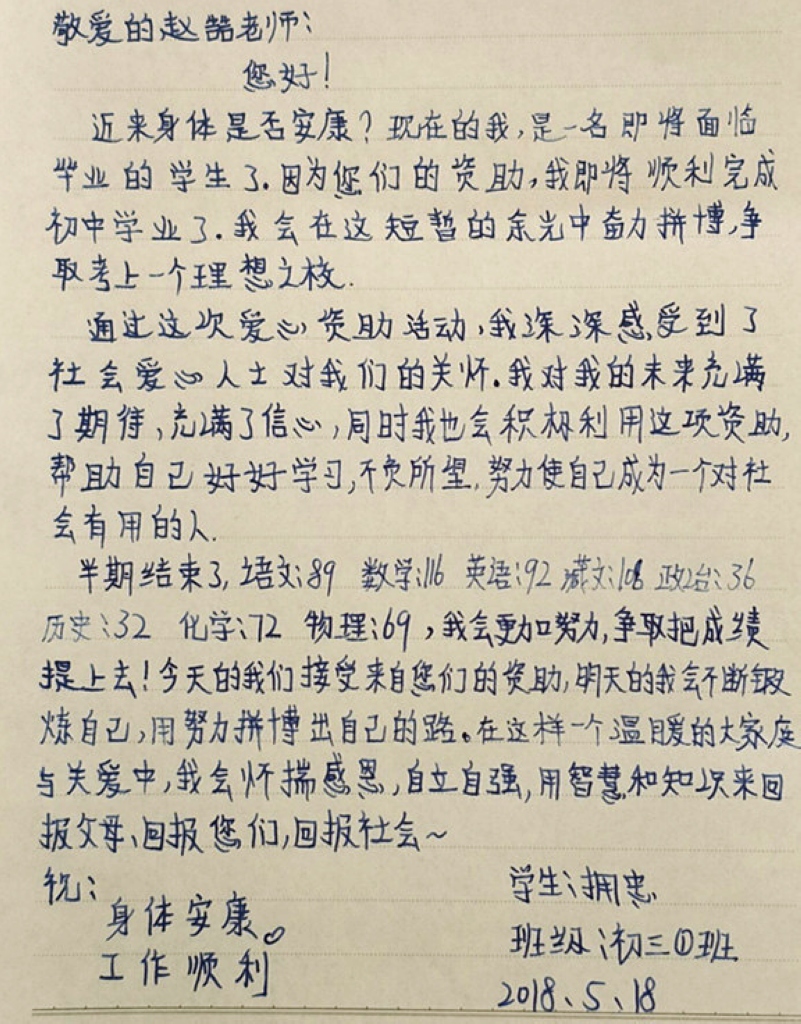 敬爱的赵皓老师：
您好！
近来身体是否安康？现在的我，是一名即将面临
毕业的学生了.因为您们的资助，我即将顺利完成
初中学业了.我会在这短暂的余光中奋力拼博，争
取考上一个理想之校.
通过这次爱心资助活动，我深深感受到了
社会爱心人士对我们的关怀.我对我的未来充满
了期待，充满了信心，同时我也会积极利用这项资助，
帮助自己好好学习，不负所望，努力使自己成为一个对社
会有用的人.
半期结束了，语文：89 数学：116 英语：92 藏文：108 政治：36
历史：32 化学：72 物理：69，我会更加努力，争取把成绩
提上去！今天的我们接受来自您们的资助，明天的我会不断锻
炼自己，用努力拼博出自己的路。在这样一个温暖的大家庭
与关爱中，我会怀揣感恩，自立自强，用智慧和知识来回
报父母、回报您们，回报社会~
祝：
身体安康。
工作顺利
学生：拥忠
班级：初三①班
2018、5、18